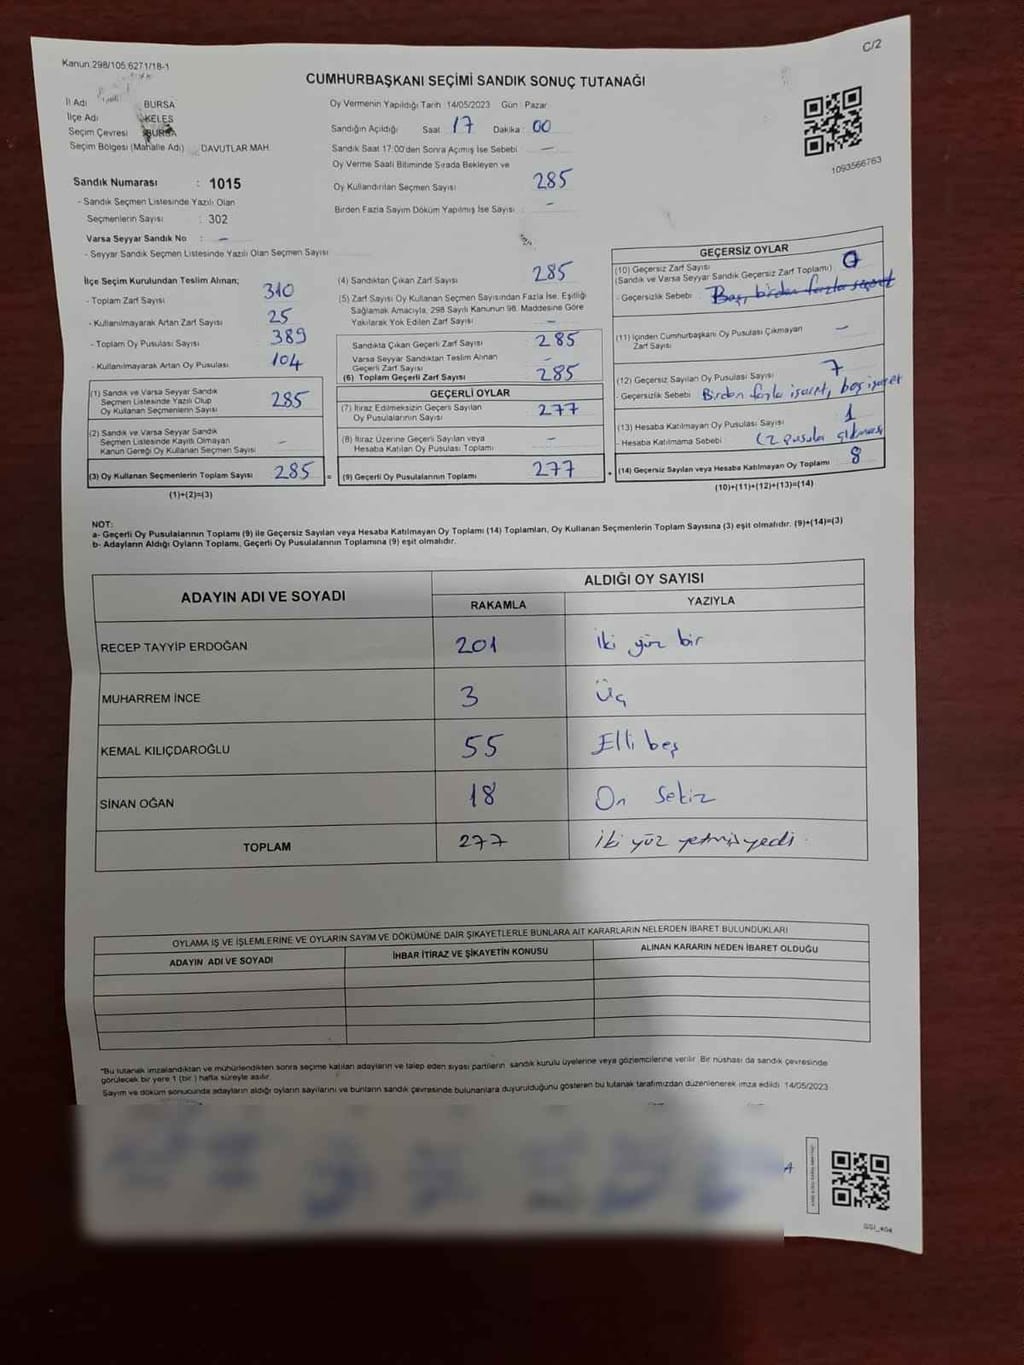 C/2
Kanun 298/105 6271/18-1
CUMHURBAŞKANI SEÇİMİ SANDIK SONUÇ TUTANAĞI
İl Adı BURSA
İlçe Adı KELES
Seçim Çevresi BURSA
Seçim Bölgesi (Mahalle Adı) DAVUTLAR MAH.
Sandık Numarası : 1015
- Sandık Seçmen Listesinde Yazılı Olan
Seçmenlerin Sayısı : 302
Varsa Seyyar Sandık No : -
- Seyyar Sandık Seçmen Listesinde Yazılı Olan Seçmen Sayısı
Oy Vermenin Yapıldığı Tarih : 14/05/2023 Gün : Pazar
Sandığın Açıldığı Saat : 17 Dakika : 00
Sandık Saat 17:00'den Sonra Açımış İse Sebebi -
Oy Verme Saati Bitiminde Sırada Bekleyen ve
Oy Kullandırılan Seçmen Sayısı 285
Birden Fazla Sayım Döküm Yapılmış İse Sayısı : -
1093566763
İlçe Seçim Kurulundan Teslim Alınan;
- Toplam Zarf Sayısı 310
- Kullanılmayarak Artan Zarf Sayısı 25
- Toplam Oy Pusulası Sayısı 389
- Kullanılmayarak Artan Oy Pusulası 104
(1) Sandık ve Varsa Seyyar Sandık
Seçmen Listesinde Yazılı Olup
Oy Kullanan Seçmenlerin Sayısı 285
(2) Sandık ve Varsa Seyyar Sandık
Seçmen Listesinde Kayıtlı Olmayan
Kanun Gereği Oy Kullanan Seçmen Sayısı -
(3) Oy Kullanan Seçmenlerin Toplam Sayısı 285 =
(1)+(2)=(3)
(4) Sandıktan Çıkan Zarf Sayısı 285
(5) Zarf Sayısı Oy Kullanan Seçmen Sayısından Fazla İse, Eşitliği
Sağlamak Amacıyla, 298 Sayılı Kanunun 98. Maddesine Göre
Yakılarak Yok Edilen Zarf Sayısı -
Sandıkta Çıkan Geçerli Zarf Sayısı 285
Varsa Seyyar Sandıktan Teslim Alınan
Geçerli Zarf Sayısı -
(6) Toplam Geçerli Zarf Sayısı 285
GEÇERLİ OYLAR
(7) İtiraz Edilmeksizin Geçerli Sayılan
Oy Pusulalarının Sayısı 277
(8) İtiraz Üzerine Geçerli Sayılan veya
Hesaba Katılan Oy Pusulası Toplamı -
(9) Geçerli Oy Pusulalarının Toplamı 277 +
GEÇERSİZ OYLAR
(10) Geçersiz Zarf Sayısı
(Sandık ve Varsa Seyyar Sandık Geçersiz Zarf Toplamı) 0
- Geçersizlik Sebebi : Boş, birden fazla
(11) İçinden Cumhurbaşkanı Oy Pusulası Çıkmayan
Zarf Sayısı -
(12) Geçersiz Sayılan Oy Pusulası Sayısı 7
- Geçersizlik Sebebi Birden fazla işaret, boş işaret
(13) Hesaba Katılmayan Oy Pusulası Sayısı 1
- Hesaba Katılmama Sebebi (2 pusula çıkması
(14) Geçersiz Sayılan veya Hesaba Katılmayan Oy Toplamı 8
(10)+(11)+(12)+(13)=(14)
NOT:
a- Geçerli Oy Pusulalarının Toplamı (9) ile Geçersiz Sayılan veya Hesaba Katılmayan Oy Toplamı (14) Toplamları, Oy Kullanan Seçmenlerin Toplam Sayısına (3) eşit olmalıdır. (9)+(14)=(3)
b- Adayların Aldığı Oyların Toplamı, Geçerli Oy Pusulalarının Toplamına (9) eşit olmalıdır.
ADAYIN ADI VE SOYADI ALDIĞI OY SAYISI
RAKAMLA YAZIYLA
RECEP TAYYİP ERDOĞAN 201 iki yüz bir
MUHARREM İNCE 3 Üç
KEMAL KILIÇDAROĞLU 55 Elli beş
SİNAN OĞAN 18 On sekiz
TOPLAM 277 iki yüz yetmişyedi
OYLAMA İŞ VE İŞLEMLERİNE VE OYLARIN SAYIM VE DÖKÜMÜNE DAİR ŞİKAYETLERLE BUNLARA AİT KARARLARIN NELERDEN İBARET BULUNDUKLARI
ADAYIN ADI VE SOYADI İHBAR İTİRAZ VE ŞİKAYETİN KONUSU ALINAN KARARIN NEDEN İBARET OLDUĞU
*Bu tutanak imzalandıktan ve mühürlendikten sonra seçime katılan adayların ve talep eden siyasi partilerin sandık kurulu üyelerine veya gözlemcilerine verilir. Bir nüshası da sandık çevresinde
görülecek bir yere 1 (bir ) hafta süreyle asılır.
Sayım ve döküm sonucunda adayların aldığı oyların sayılarını ve bunların sandık çevresinde bulunanlara duyurulduğunu gösteren bu tutanak tarafımızdan düzenlenerek imza edildi. 14/05/2023